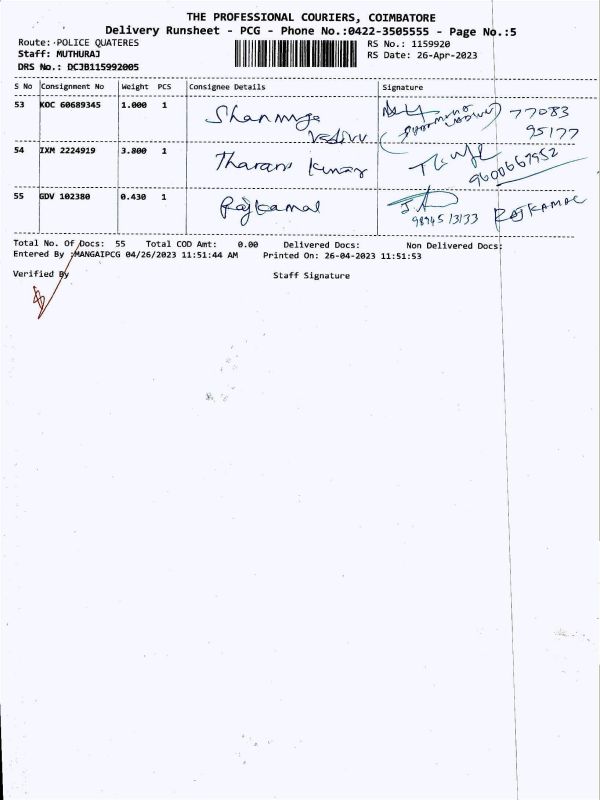 THE PROFESSIONAL COURIERS, COIMBATORE
Delivery Runsheet - PCG - Phone No.:0422-3505555 - Page No.:5
Route: POLICE QUATERES RS No.: 1159920
Staff: MUTHURAJ RS Date: 26-Apr-2023
DRS No.: DCJB115992005
S No Consignment No Weight PCS Consignee Details Signature
53 KOC 60689345 1.000 1 Shanmuga 77083
Vadivu 95177
54 IXM 2224919 3.800 1 Tharani Kumar 9600667952
55 GDV 102380 0.430 1 Rajkamal RAJKAMAL
98945 13133
Total No. Of Docs: 55 Total COD Amt: 0.00 Delivered Docs: Non Delivered Docs:
Entered By :MANGAIPCG 04/26/2023 11:51:44 AM Printed On: 26-04-2023 11:51:53
Verified By Staff Signature